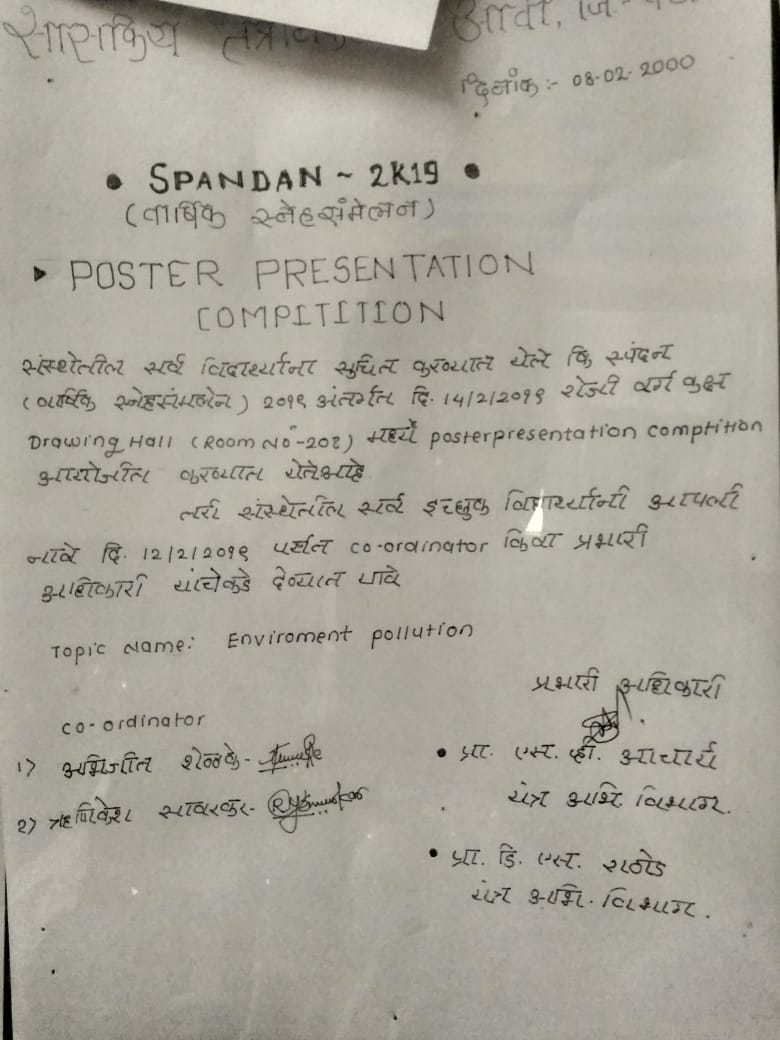 शासकिय
दिनांक :- 08-02-2000
• SPANDAN ~ 2K19 •
(वार्षिक स्नेहसंमेलन)
▸ POSTER PRESENTATION
COMPITITION
संस्थेतील सर्व विद्यार्थ्यांना सुचित करण्यात येते कि स्पंदन
(वार्षिक स्नेहसंमेलन) २०१९ अंतर्गत दि. 14/2/२०१९ रोजी वर्ग कक्ष
Drawing Hall (Room No-208) मध्ये posterpresentation comptition
आयोजीत करण्यात येतेआहे.
तरी संस्थेतील सर्व इच्छुक विद्यार्थ्यांनी आपली
नावे दि. 12/2/२०१९ पर्यंत co-ordinator किंवा प्रभारी
अधिकारी यांचेकडे देण्यात यावे
Topic Name: Enviroment pollution
प्रभारी अधिकारी
co-ordinator
1) अभिजीत शेळके-
2) ऋषिकेश सावरकर-
• प्रा. एस. व्ही. आचार्य
यंत्र अभि विभाग.
• प्रा. डि. एस. राठोड
यंत्र अभि. विभाग.